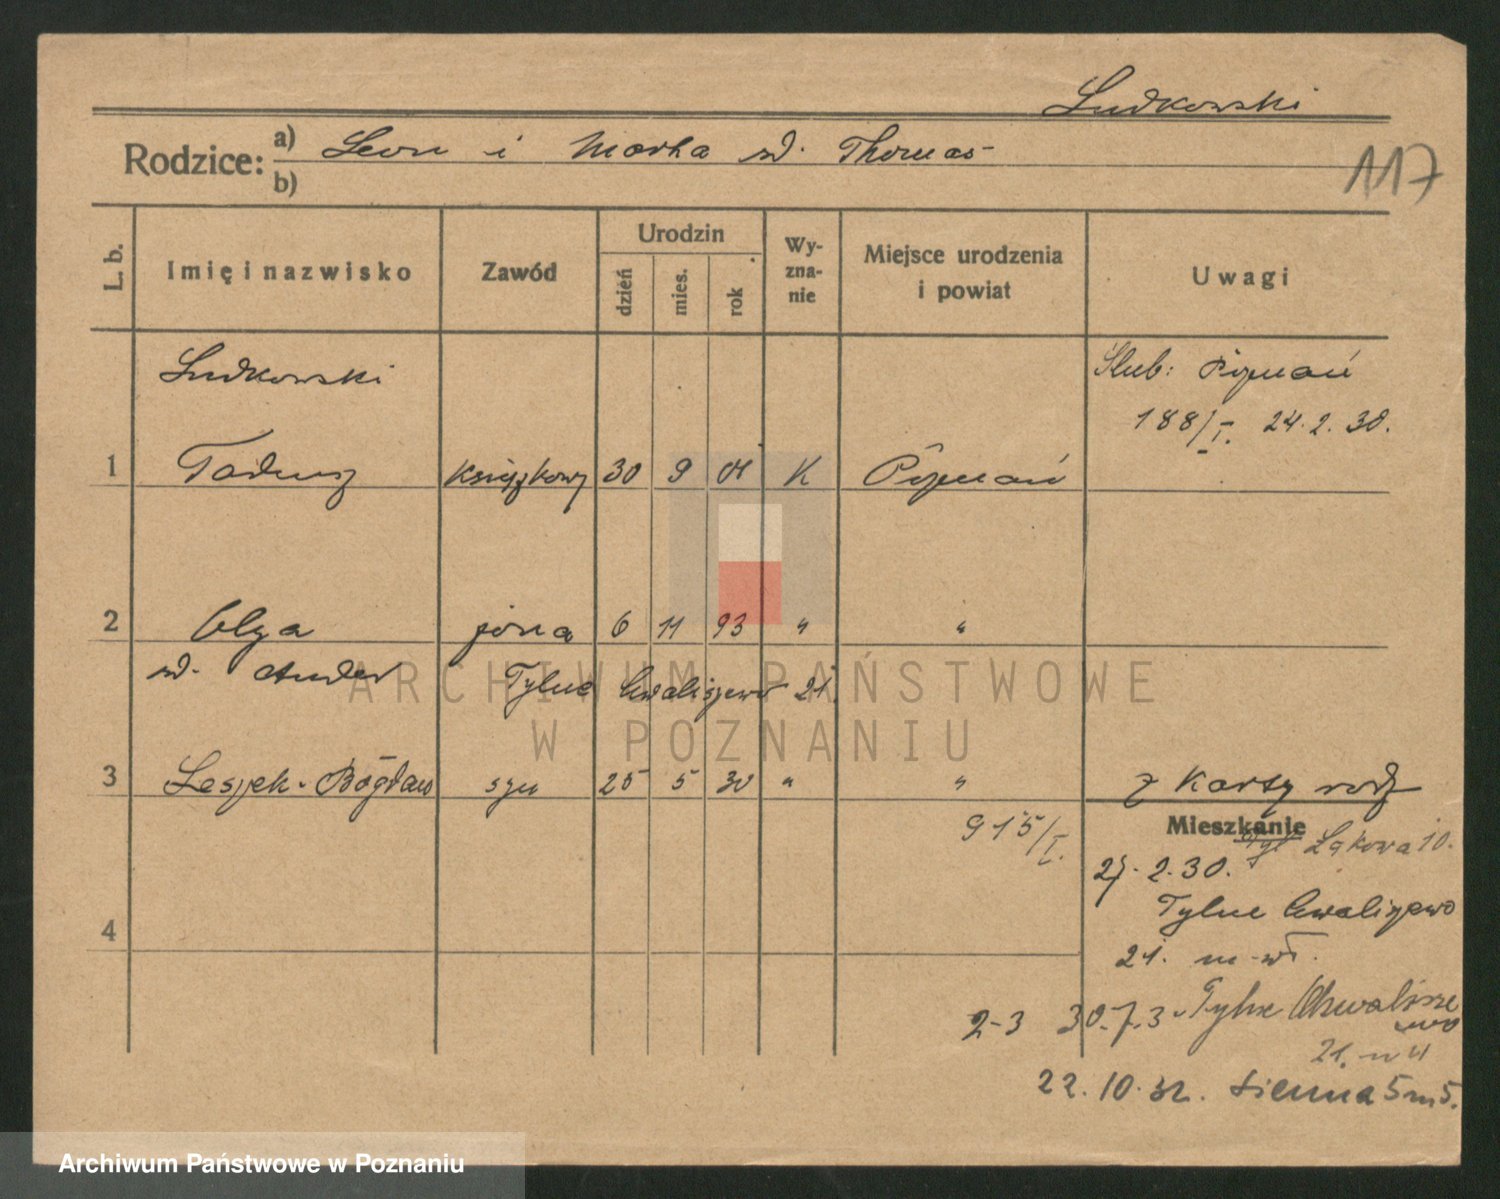 Ludkowski
Rodzice: a) Leon i Marta zd. Thomas
b)
117
L. b. Imię i nazwisko Zawód Urodzin dzień mies. rok Wyznanie Miejsce urodzenia i powiat Uwagi
Ludkowski
Ślub: Poznań
188/I. 24.2.30.
1 Tadeusz książkowy 30 9 01 K Poznań
2 Olga żona 6 11 93 " "
zd. Ander Tylne Chwaliszewo 21.
3 Leszek-Bogdan syn 25 5 30 " " z karty rodz
915/I.
Mieszkanie
Łąkowa 10.
27.2.30.
Tylne Chwaliszewo
21. m
4
2-3 30.7.3 Tylne Chwalisze
wo
21. m 4
22.10.32. Sienna 5 m 5.
ARCHIWUM PAŃSTWOWE
W POZNANIU
Archiwum Państwowe w Poznaniu